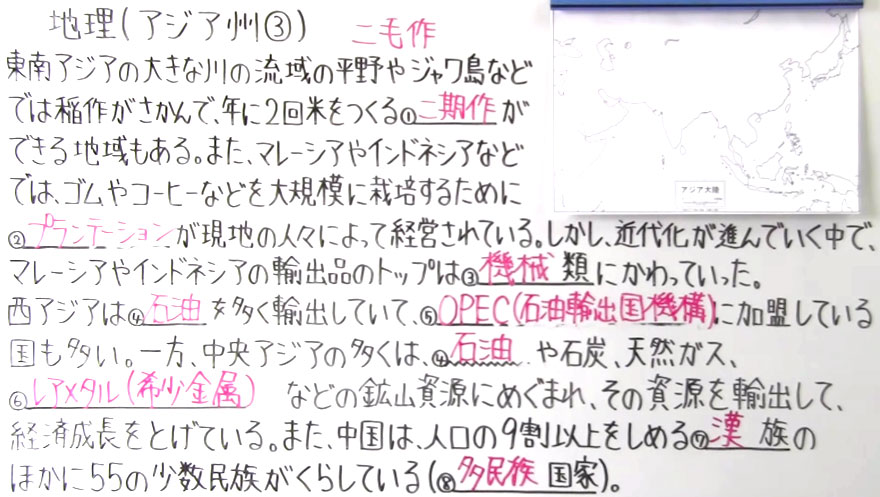 地理(アジア州③)
二毛作
東南アジアの大きな川の流域の平野やジャワ島など
では稲作がさかんで、年に2回米をつくる①二期作が
できる地域もある。また、マレーシアやインドネシアなど
では、ゴムやコーヒーなどを大規模に栽培するために
②プランテーションが現地の人々によって経営されている。しかし、近代化が進んでいく中で、
マレーシアやインドネシアの輸出品のトップは③機械類にかわっていった。
西アジアは④石油を多く輸出していて、⑤OPEC(石油輸出国機構)に加盟している
国も多い。一方、中央アジアの多くは、④石油や石炭、天然ガス、
⑥レアメタル(希少金属) などの鉱山資源にめぐまれ、その資源を輸出して、
経済成長をとげている。また、中国は、人口の9割以上をしめる⑦漢族の
ほかに55の少数民族がくらしている(⑧多民族国家)。
アジア大陸